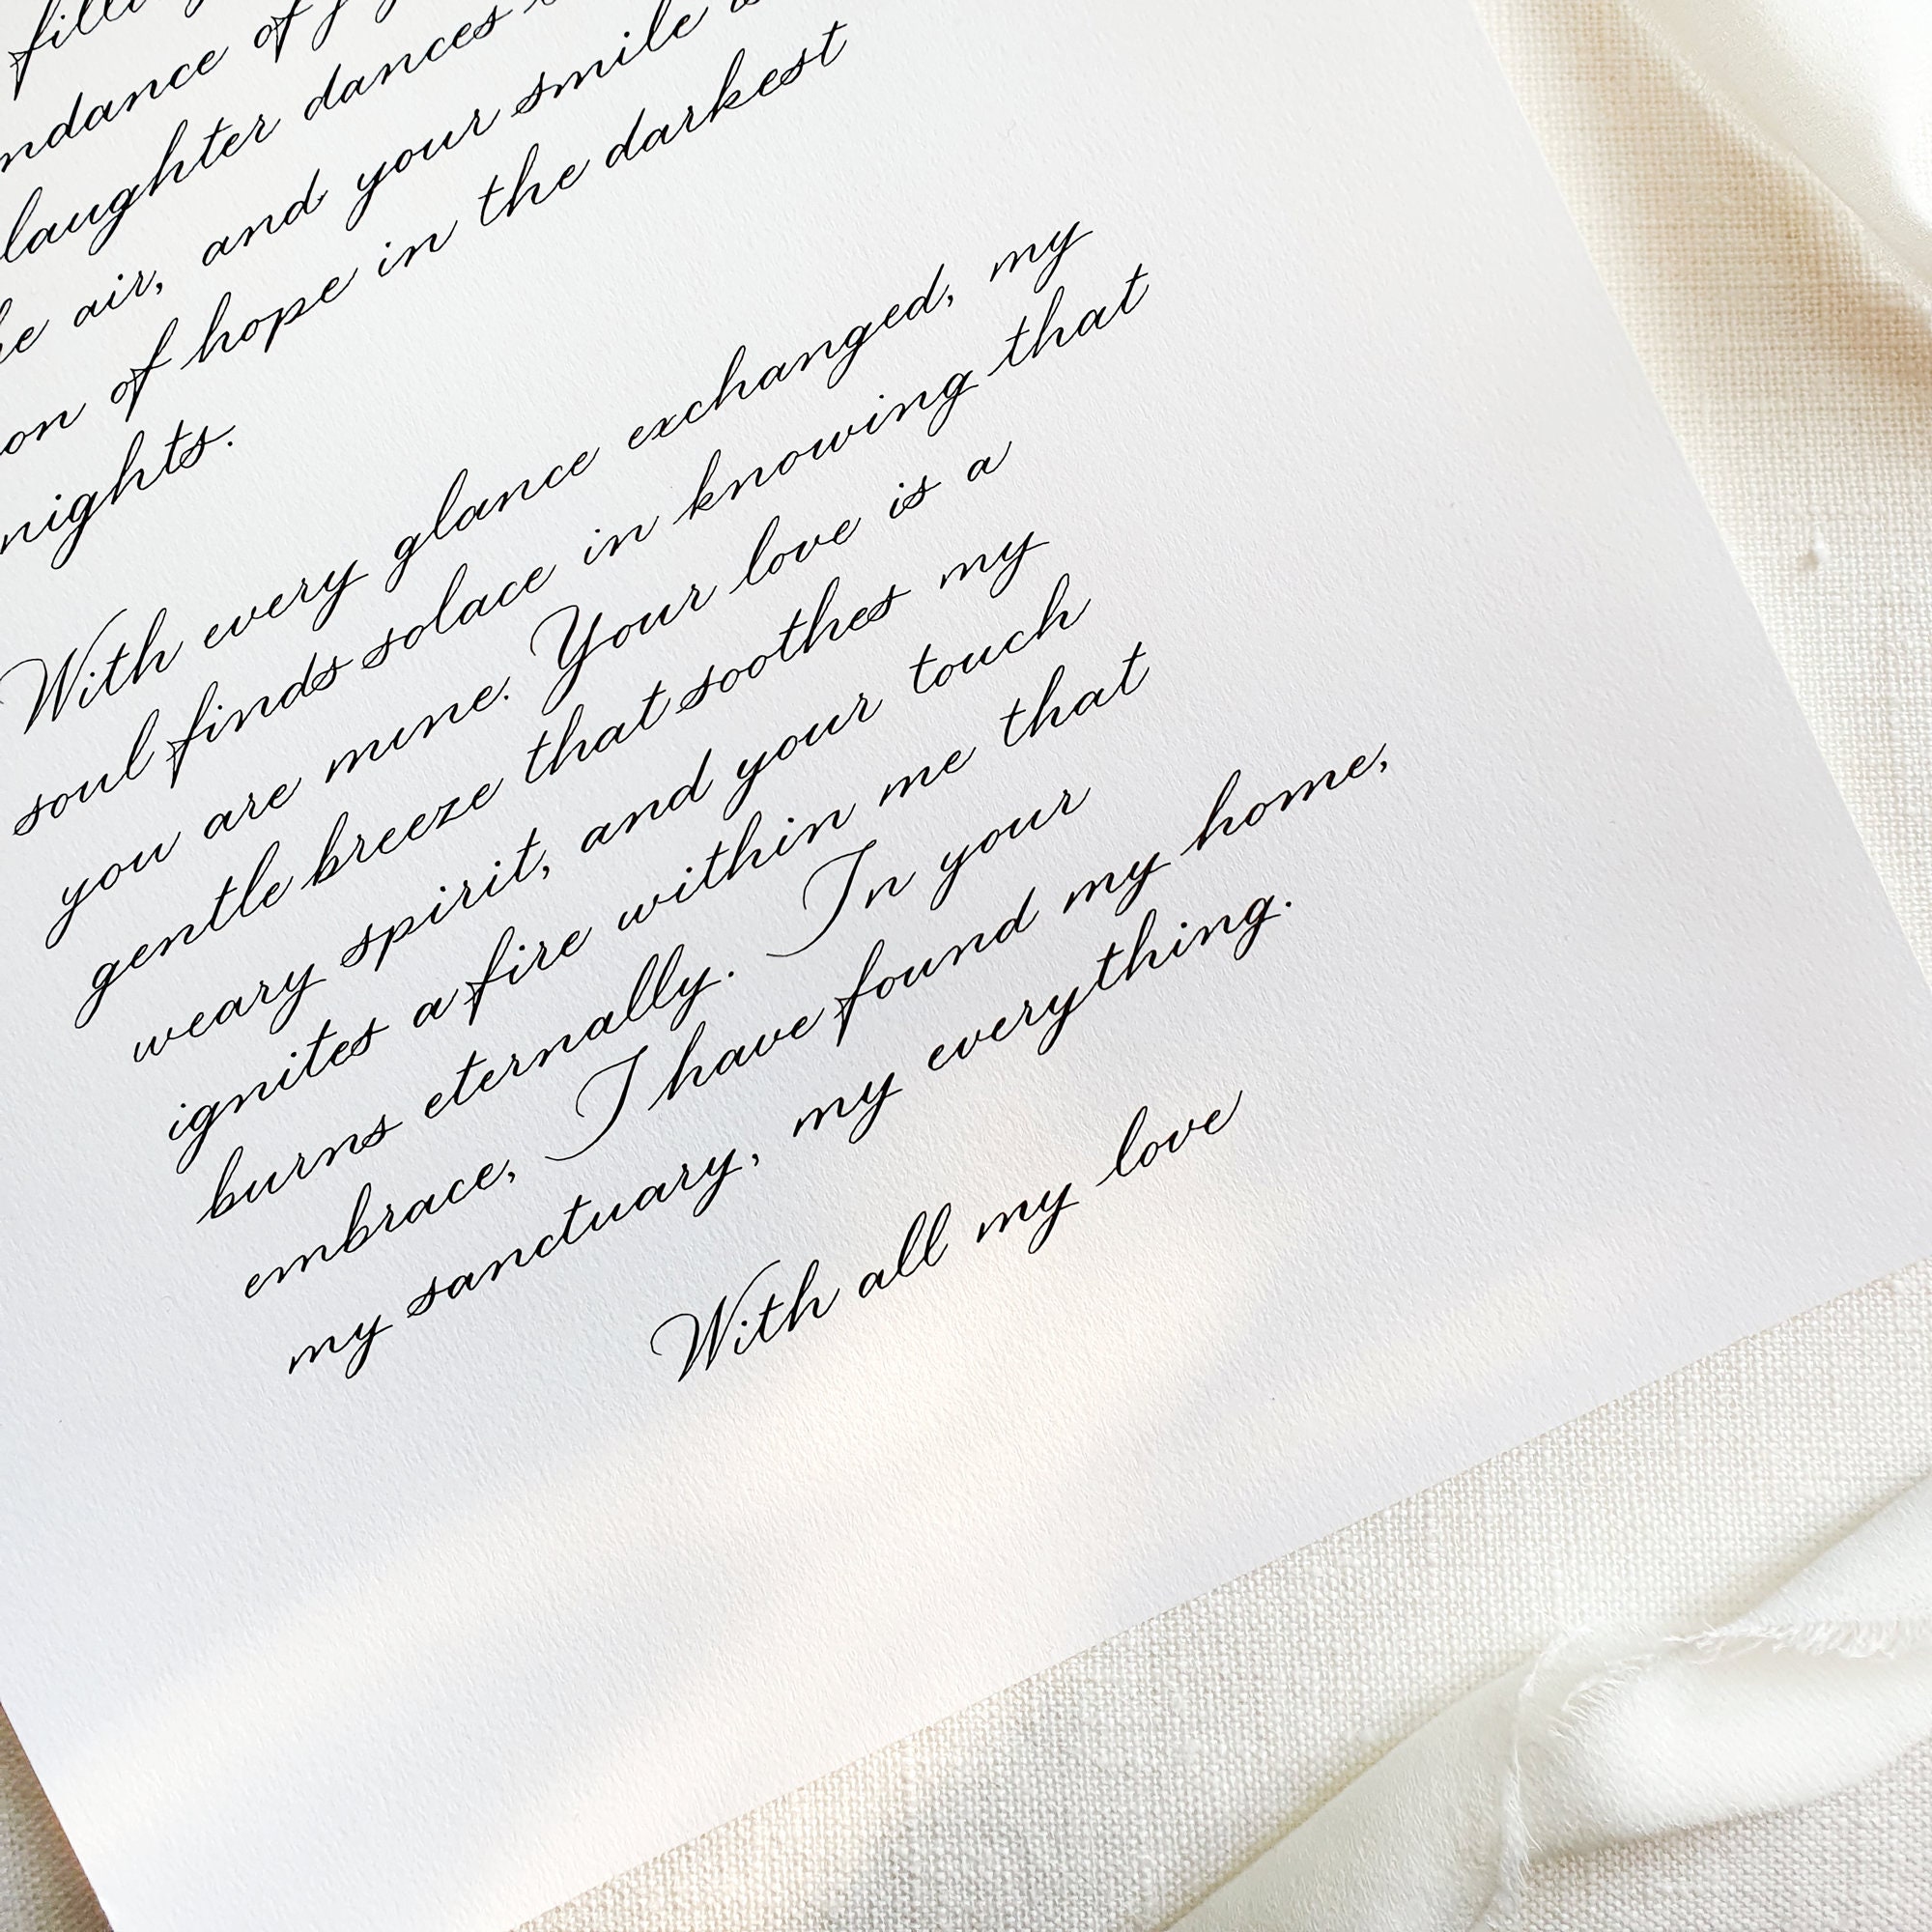 of
laughter dances
air, and your smile
of hope in the darkest
nights.
With every glance exchanged, my
soul finds solace in knowing that
you are mine. Your love is a
gentle breeze that soothes my
weary spirit, and your touch
ignites a fire within me that
burns eternally. In your
embrace, I have found my home,
my sanctuary, my everything.
With all my love